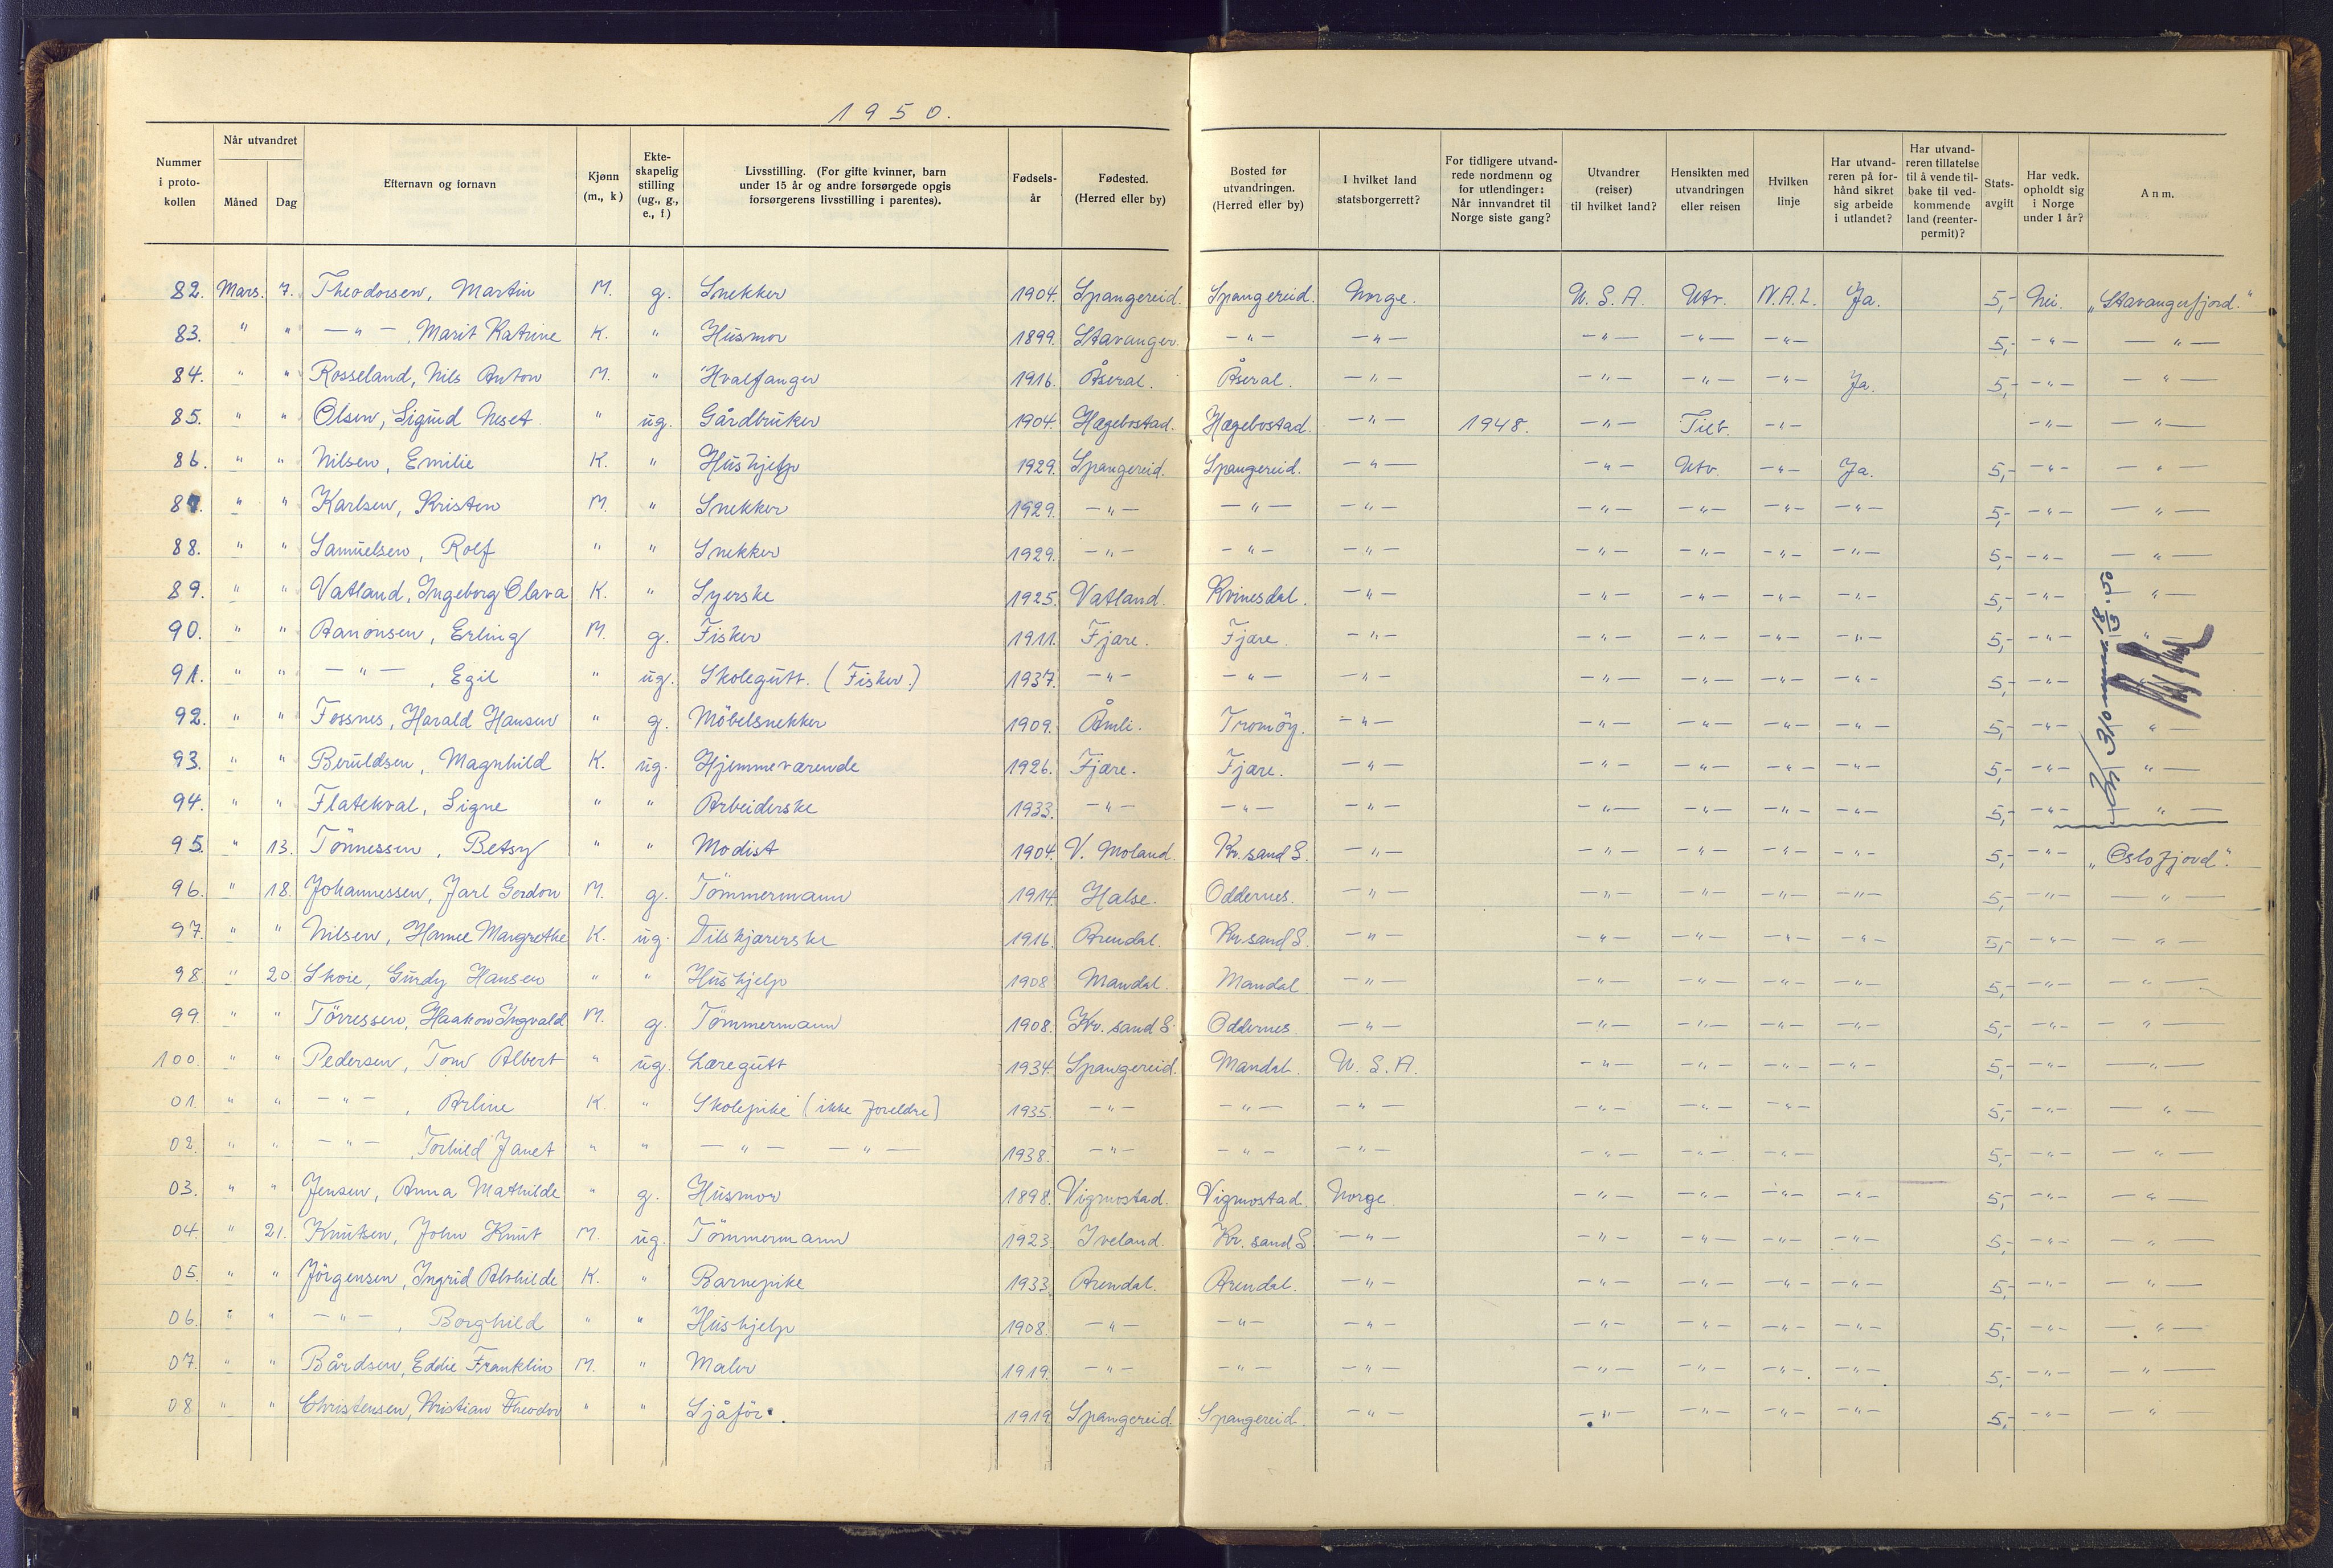 1950.
Nummer i proto-kollen | Når utvandret Måned | Dag | Efternavn og fornavn | Kjønn (m., k) | Ekte-skapelig stilling (ug., g., e., f) | Livsstilling. (For gifte kvinner, barn under 15 år og andre forsørgede opgis forsørgerens livsstilling i parentes). | Fødsels-år | Fødested. (Herred eller by) | Bosted før utvandringen. (Herred eller by) | I hvilket land statsborgerrett? | For tidligere utvand-rede nordmenn og for utlendinger: Når innvandret til Norge siste gang? | Utvandrer (reiser) til hvilket land? | Hensikten med utvandringen eller reisen | Hvilken linje | Har utvand-reren på for-hånd sikret sig arbeide i utlandet? | Har utvand-reren tillatelse til å vende til-bake til ved-kommende land (reenter-permit)? | Stats-avgift | Har vedk. opholdt sig i Norge under 1 år? | Anm.
82. Mars. 7. Theodorsen, Martin M. g. Snekker 1904. Spangereid. Spangereid. Norge. U.S.A. Utv. N.A.L. Ja. 5,- Nei. "Stavangerfjord."
83. " " —"— , Marit Katrine K. " Husmor 1899. Stavanger. —"— —"— —"— —"— —"— 5,- —"— —"—
84. " " Rosseland, Nils Anton M. " Hvalfanger 1916. Åseral. Åseral. —"— —"— —"— —"— Ja. 5,- —"— —"—
85. " " Olsen, Sigurd Neset. " ug. Gårdbruker 1904. Hægebostad. Hægebostad. —"— 1948. —"— Tilb. —"— —"— —"—
86. " " Nilsen, Emilie K. " Hushjelp 1929. Spangereid. Spangereid. —"— —"— Utv. —"— Ja. 5,- —"— —"—
87. " " Karlsen, Kristen M. " Snekker 1929. —"— —"— —"— —"— —"— —"— —"— 5,- —"— —"—
88. " " Samuelsen, Rolf " " Snekker 1929. —"— —"— —"— —"— —"— —"— —"— 5,- —"— —"—
89. " " Vatland, Ingeborg Olava K. " Syerske 1925. Vatland. Kvinesdal. —"— —"— —"— —"— —"— 5,- —"— —"—
90. " " Aanonsen, Erling M. g. Fisker 1911. Fjære. Fjære. —"— —"— —"— —"— —"— 5,- —"— "
91. " " —"— , Egil " ug. Skolegutt. (Fisker.) 1937. —"— —"— —"— —"— —"— —"— —"— 5,- —"—
92. " " Fossnes, Harald Hansen " g. Möbelsnekker 1909. Åmli. Tromöy. —"— —"— —"— —"— —"— 5,- —"— "—
93. " " Beruldsen, Magnhild K. ug. Hjemmeværende 1926. Fjære. Fjære. —"— —"— —"— —"— —"— 5,- —"— —"—
94. " " Flatekval, Signe " " Arbeiderske 1933. —"— —"— —"— —"— —"— —"— —"— 5,- —"— —"—
95. " 13. Tönnessen, Betsy " " Modist 1904. V. Moland. Kr.sand S. —"— —"— —"— —"— —"— 5,- —"— "Oslofjord".
96. " 18. Johannessen, Jarl Gordon M. g. Tömmermann 1914. Halse. Oddernes. —"— —"— —"— —"— —"— 5,- —"— —"—
97. " " Nilsen, Margrethe K. ug. 1916. Arendal. Kr.sand S. —"— —"— —"— —"— —"— 5,- —"— —"—
98. " 20. Skoie, Gurdy Hansen " " Hushjelp 1908 Mandal. Mandal —"— —"— —"— —"— —"— 5,- —"— —"—
99. " " Törressen, Haakon Ingvald M. g. Tömmermann 1908. Kr.sand S. Oddernes. —"— —"— —"— —"— —"— 5,- —"— —"—
100. " " Pedersen, Tom Albert " ug. Læregutt 1934. Spangereid. Mandal. U.S.A. —"— —"— —"— —"— 5,- —"— —"—
01. " " —"— , Arline K. " Skolepike (ikke foreldre) 1935. —"— —"— —"— —"— —"— —"— 5,- —"— —"—
02. " " —"— , Torhild Janet " " —"— —"— 1938. —"— —"— —"— —"— —"— —"— 5,- —"— —"—
03. " " Jensen, Anna Mathilde " g. Husmor 1898. Vigmostad. Vigmostad. Norge. —"— —"— —"— —"— 5,- —"— —"—
04. " 21. Knutsen, John Knut M. ug. Tömmermann 1923. Iveland. Kr.sand S. —"— —"— —"— —"— —"— 5,- —"— —"—
05. " " Jörgensen, Ingrid Alvhilde K. " Barnepike 1933. Arendal. Arendal. —"— —"— —"— —"— —"— 5,- —"— —"—
06. " " —"— , Borghild " " Hushjelp 1908. —"— —"— —"— —"— —"— —"— —"— 5,- —"— —"—
07. " " Bårdsen, Eddie Franklin M. " Maler 1919. —"— —"— —"— —"— —"— —"— —"— 5,- —"— —"—
08 " " Christensen, Kristian Theodor " " Sjåför. 1919. Spangereid Spangereid. —"— —"— —"— —"— —"— 5,- —"— —"—